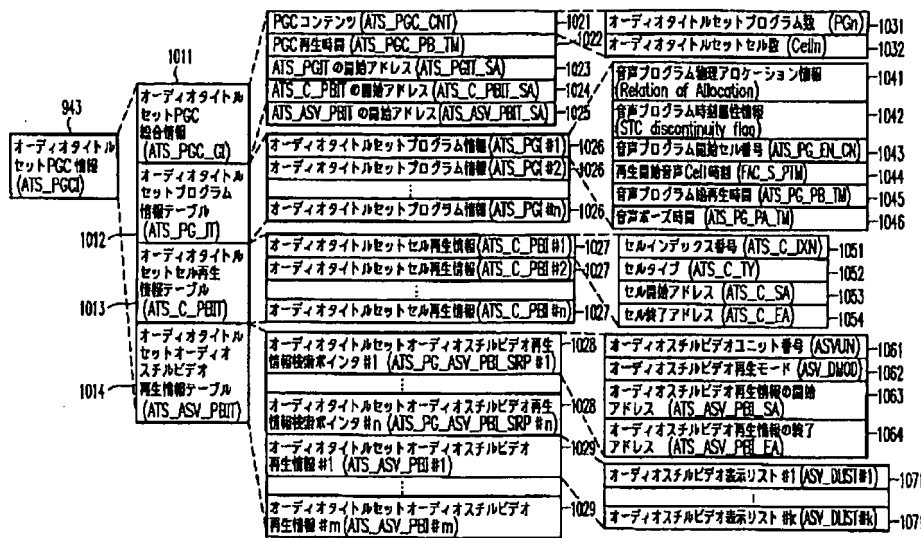 943
オーディオタイトル
セットPGC 情報
(ATS_PGCI)
1011
オーディオタイトル
セットPGC
総合情報
(ATS_PGC_GI)
オーディオタイトル
セットプログラム
情報テーブル
(ATS_PG_IT)
1012
オーディオタイトル
セットセル再生
情報テーブル
(ATS_C_PBIT)
1013
オーディオタイトル
セットオーディオ
スチルビデオ
再生情報テーブル
(ATS_ASV_PBIT)
1014
PGC コンテンツ (ATS_PGC_CNT)
1021
PGC 再生時間 (ATS_PGC_PB_TM)
1022
ATS_PGIT の開始アドレス (ATS_PGIT_SA)
1023
ATS_C_PBIT の開始アドレス (ATS_C_PBIT_SA)
1024
ATS_ASV_PBIT の開始アドレス (ATS_ASV_PBIT_SA)
1025
オーディオタイトルセットプログラム情報 (ATS_PGI #1)
1026
オーディオタイトルセットプログラム情報 (ATS_PGI #2)
1026
オーディオタイトルセットプログラム情報 (ATS_PGI #n)
1026
オーディオタイトルセットセル再生情報 (ATS_C_PBI #1)
1027
オーディオタイトルセットセル再生情報 (ATS_C_PBI #2)
1027
オーディオタイトルセットセル再生情報 (ATS_C_PBI #n)
1027
オーディオタイトルセットオーディオスチルビデオ再生
情報検索ポインタ #1 (ATS_PG_ASV_PBI_SRP #1)
1028
オーディオタイトルセットオーディオスチルビデオ再生
情報検索ポインタ #n (ATS_PG_ASV_PBI_SRP #n)
1028
オーディオタイトルセットオーディオスチルビデオ
再生情報 #1 (ATS_ASV_PBI #1)
1029
オーディオタイトルセットオーディオスチルビデオ
再生情報 #m (ATS_ASV_PBI #m)
1029
オーディオタイトルセットプログラム数 (PGn)
1031
オーディオタイトルセットセル数 (Celln)
1032
音声プログラム物理アロケーション情報
(Relation of Allocation)
1041
音声プログラム時刻属性情報
(STC discontinuity flag)
1042
音声プログラム開始セル番号 (ATS_PG_EN_CN)
1043
再生開始音声Cell時刻 (FAC_S_PTM)
1044
音声プログラム総再生時間 (ATS_PG_PB_TM)
1045
音声ポーズ時間 (ATS_PG_PA_TM)
1046
セルインデックス番号 (ATS_C_IXN)
1051
セルタイプ (ATS_C_TY)
1052
セル開始アドレス (ATS_C_SA)
1053
セル終了アドレス (ATS_C_EA)
1054
オーディオスチルビデオユニット番号 (ASVUN)
1061
オーディオスチルビデオ再生モード (ASV_DMOD)
1062
オーディオスチルビデオ再生情報の開始
アドレス (ATS_ASV_PBI_SA)
1063
オーディオスチルビデオ再生情報の終了
アドレス (ATS_ASV_PBI_EA)
1064
オーディオスチルビデオ表示リスト #1 (ASV_DLIST #1)
1071
オーディオスチルビデオ表示リスト #k (ASV_DLIST #k)
1071